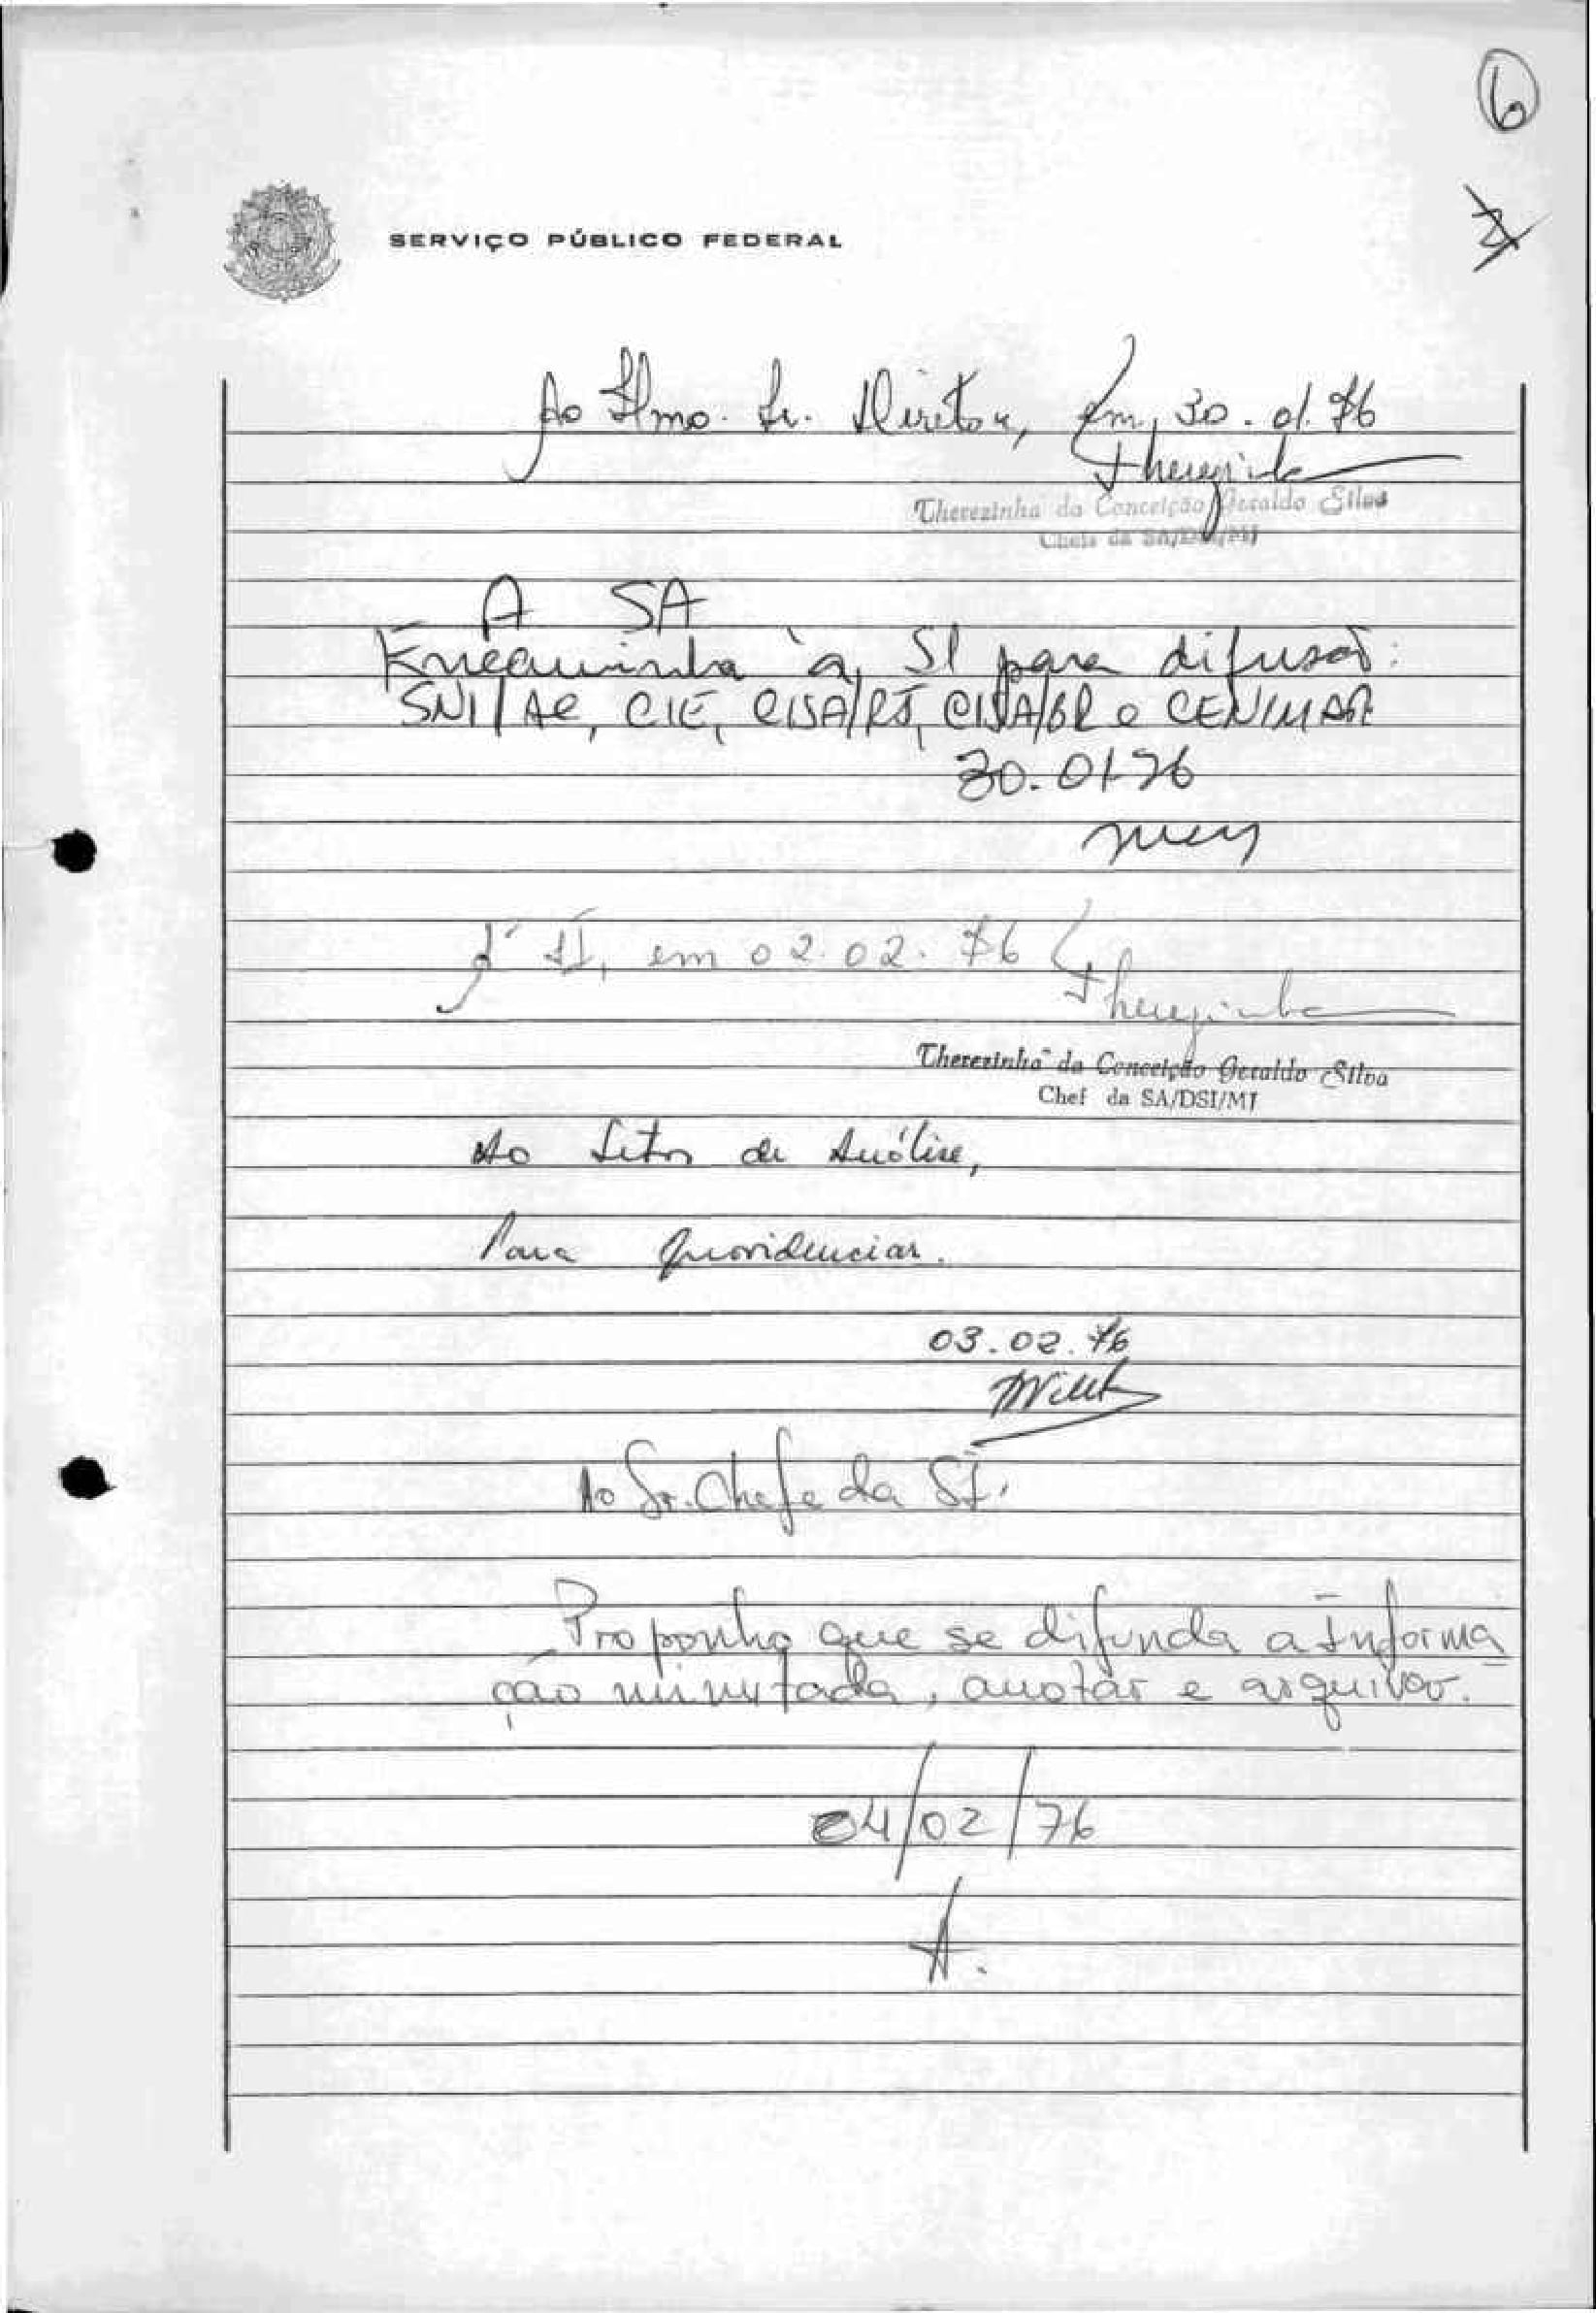 6
2
SERVIÇO PÚBLICO FEDERAL
Ao Ilmo. Sr. Diretor, Em, 30.01.76
Therezinha
Therezinha da Conceição Geraldo Silva
Chefe da SA/DSI/MJ
A SA
Encaminha à SI para difusão:
SNI/AC, CIE, CISA/RJ, CISA/BR e CENIMAR
30.01.76
À SI, em 02.02.76
Therezinha
Therezinha da Conceição Geraldo Silva
Chef da SA/DSI/MJ
Ao Setor de Análise,
Para providenciar.
03.02.76
Ao Sr. Chefe da SI.
Proponho que se difunda a informa
ção minutada, anotar e arquivar.
04/02/76
A.